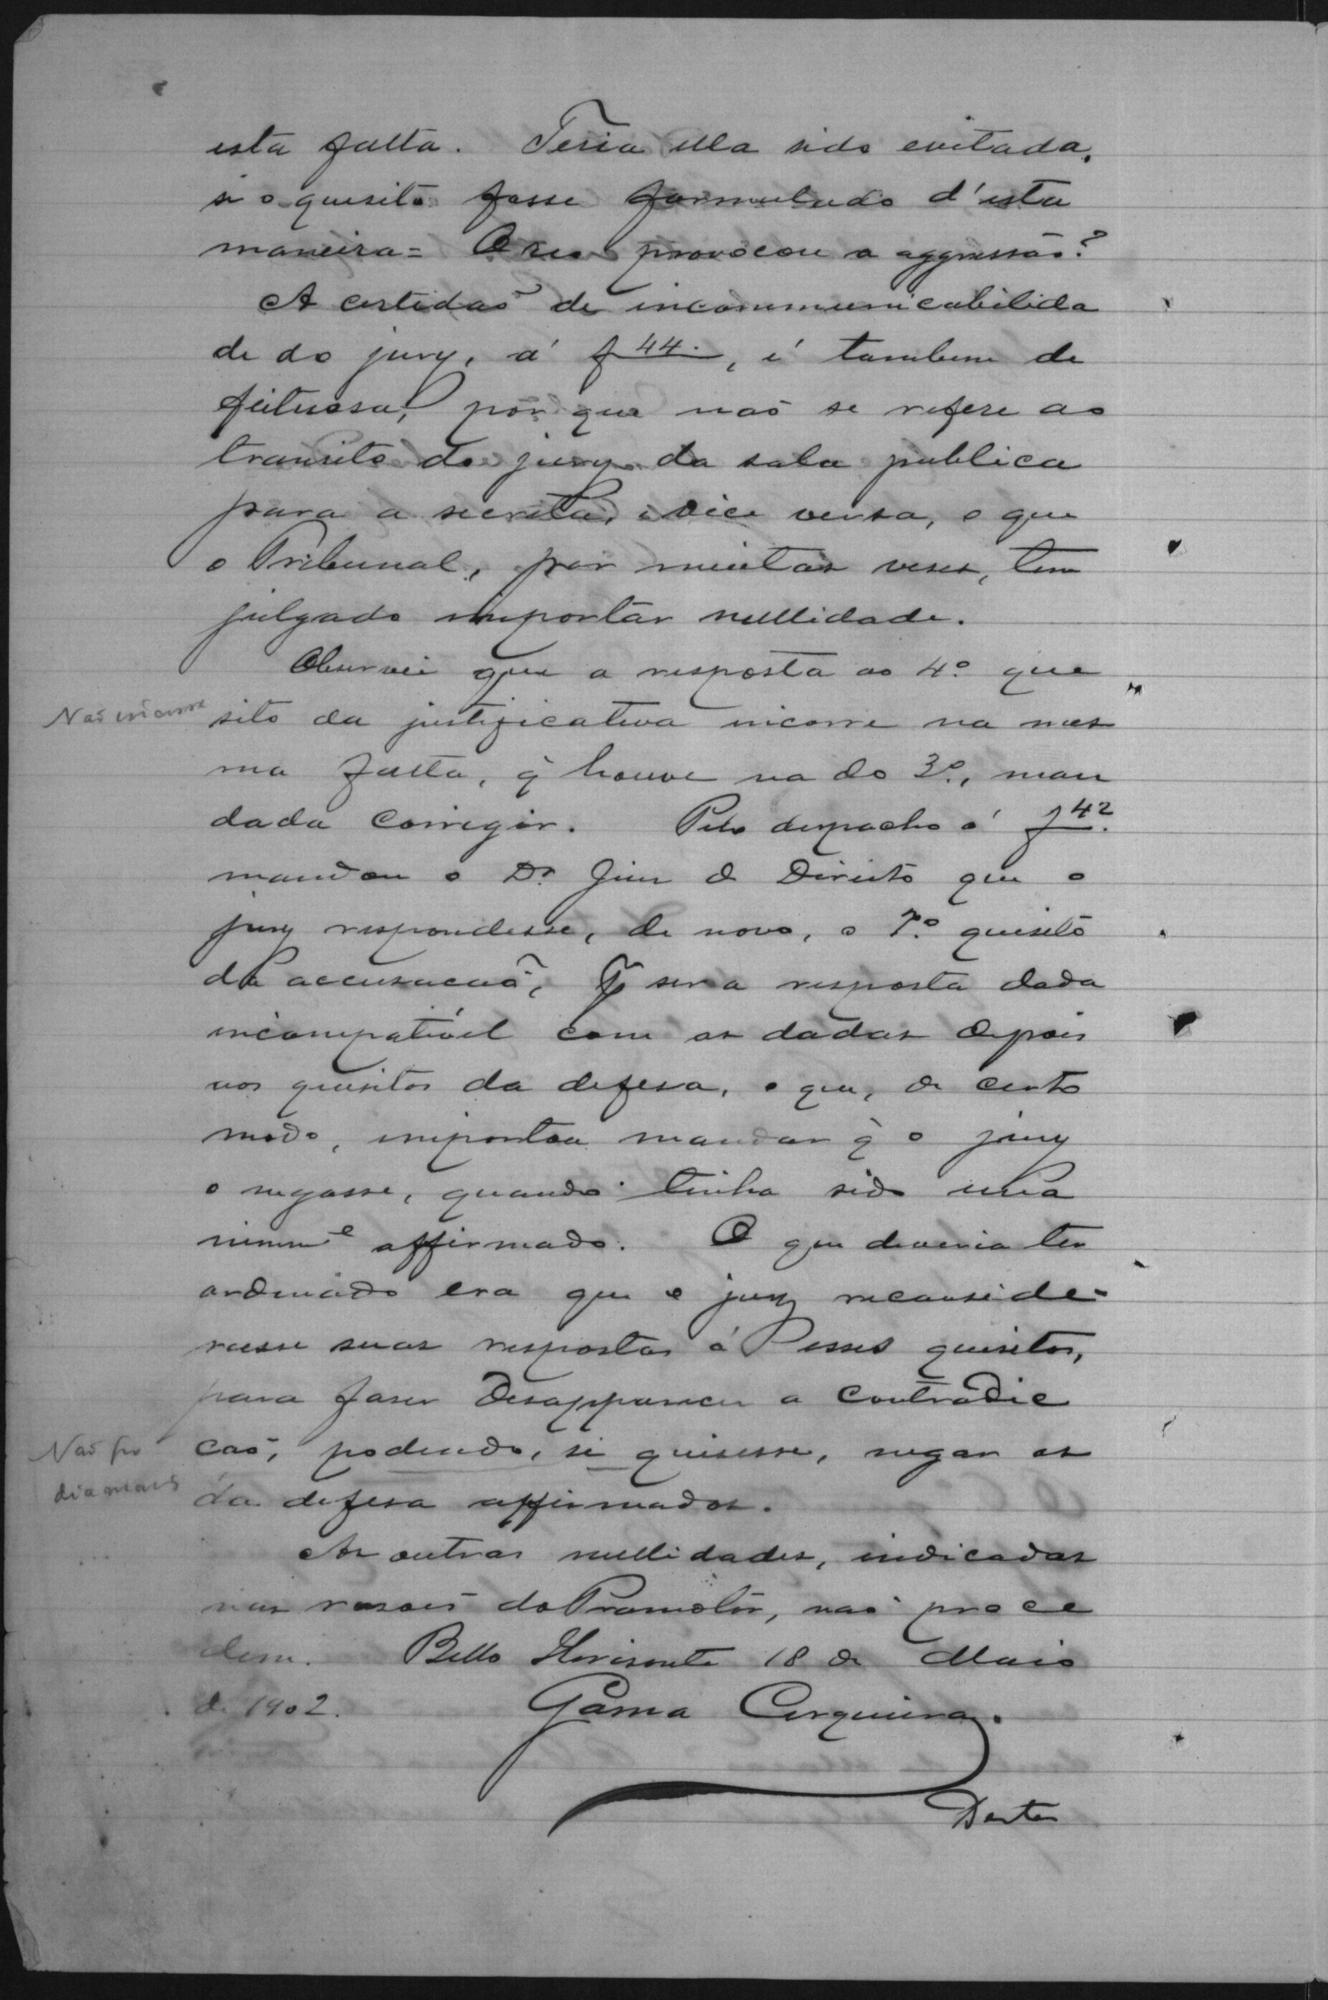 esta falta. Teria ella sido evitada,
si o quesito fosse formulado d'esta
maneira = O reo provocou a aggressão?
A certidão de incommunicabilida
de do jury, á f 44, é tambem de
feituosa, por que não se refere ao
transito do jury da sala publica
para a secreta, e vice versa, o que
o Tribunal, por muitas veses, tem
julgado importar nullidade.
Observei que a resposta ao 4º que
Não incorre
sito da justificativa incorre na mes
ma falta, q̃ houve na do 3º, man
dada corrigir. Pelo despacho á f 42.
mandou o Dr Juiz de Direito que o
jury respondesse, de novo, o 7º quesito
da accusacão, p ser a resposta dada
incompativel com as dadas depois
nos quesitos da defesa, o que, de certo
modo, importou mandar q̃ o jury
o negasse, quando tinha sido una
nimme affirmado. O que deveria ter
ordenado era que o jury reconside-
rasse suas respostas á esses quesitos,
para faser desapparecer a contradic
Não po
cão, podendo, si quisesse, negar os
dia mais
da defesa affirmados.
As outras nullidades, indicadas
nas rasões do Promotor, não proce
dem. Bello Horisonte 18 de Maio
de 1902. Gama Cerqueira.